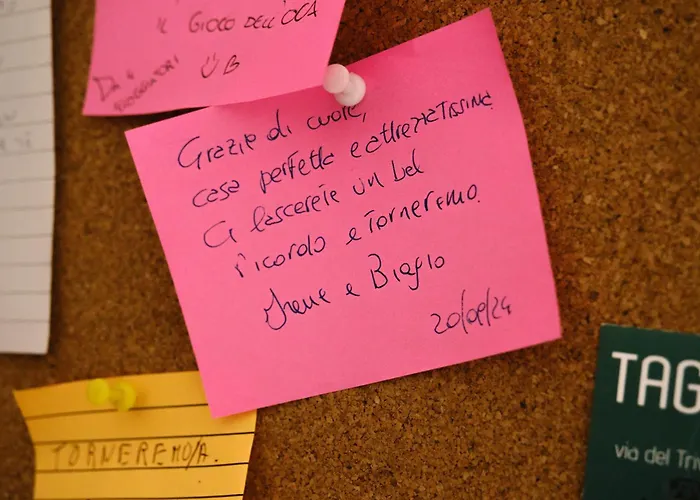 IL GIOCO DELL'OCA
DA 4
Grazie di cuore,
casa perfetta e attrezzatissima
Ci lascerete un bel
ricordo e torneremo.
Irene e Biagio
20/09/24
TORNEREMO/A.
TAG
via del Triv